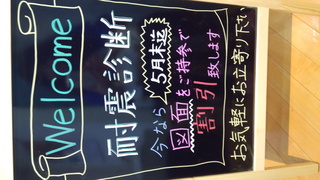 Welcome
耐震診断
今なら5月末迄
図面をご持参で
割引致します
お気軽にお立寄り下さい